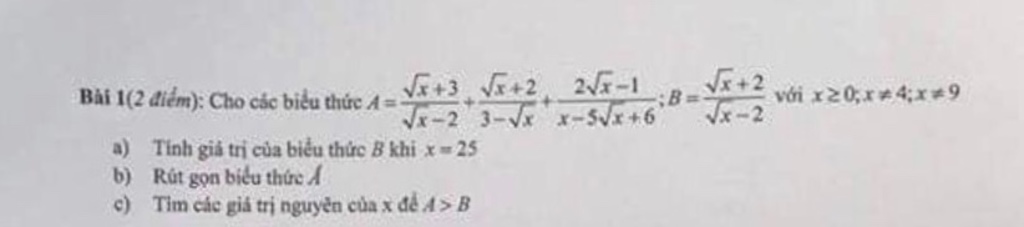 Bài 1(2 điểm): Cho các biểu thức A = (√x+3)/(√x−2) + (√x+2)/(3−√x) + (2√x−1)/(x−5√x+6); B = (√x+2)/(√x−2) với x ≥ 0; x ≠ 4; x ≠ 9
a) Tính giá trị của biểu thức B khi x = 25
b) Rút gọn biểu thức A
c) Tìm các giá trị nguyên của x để A > B